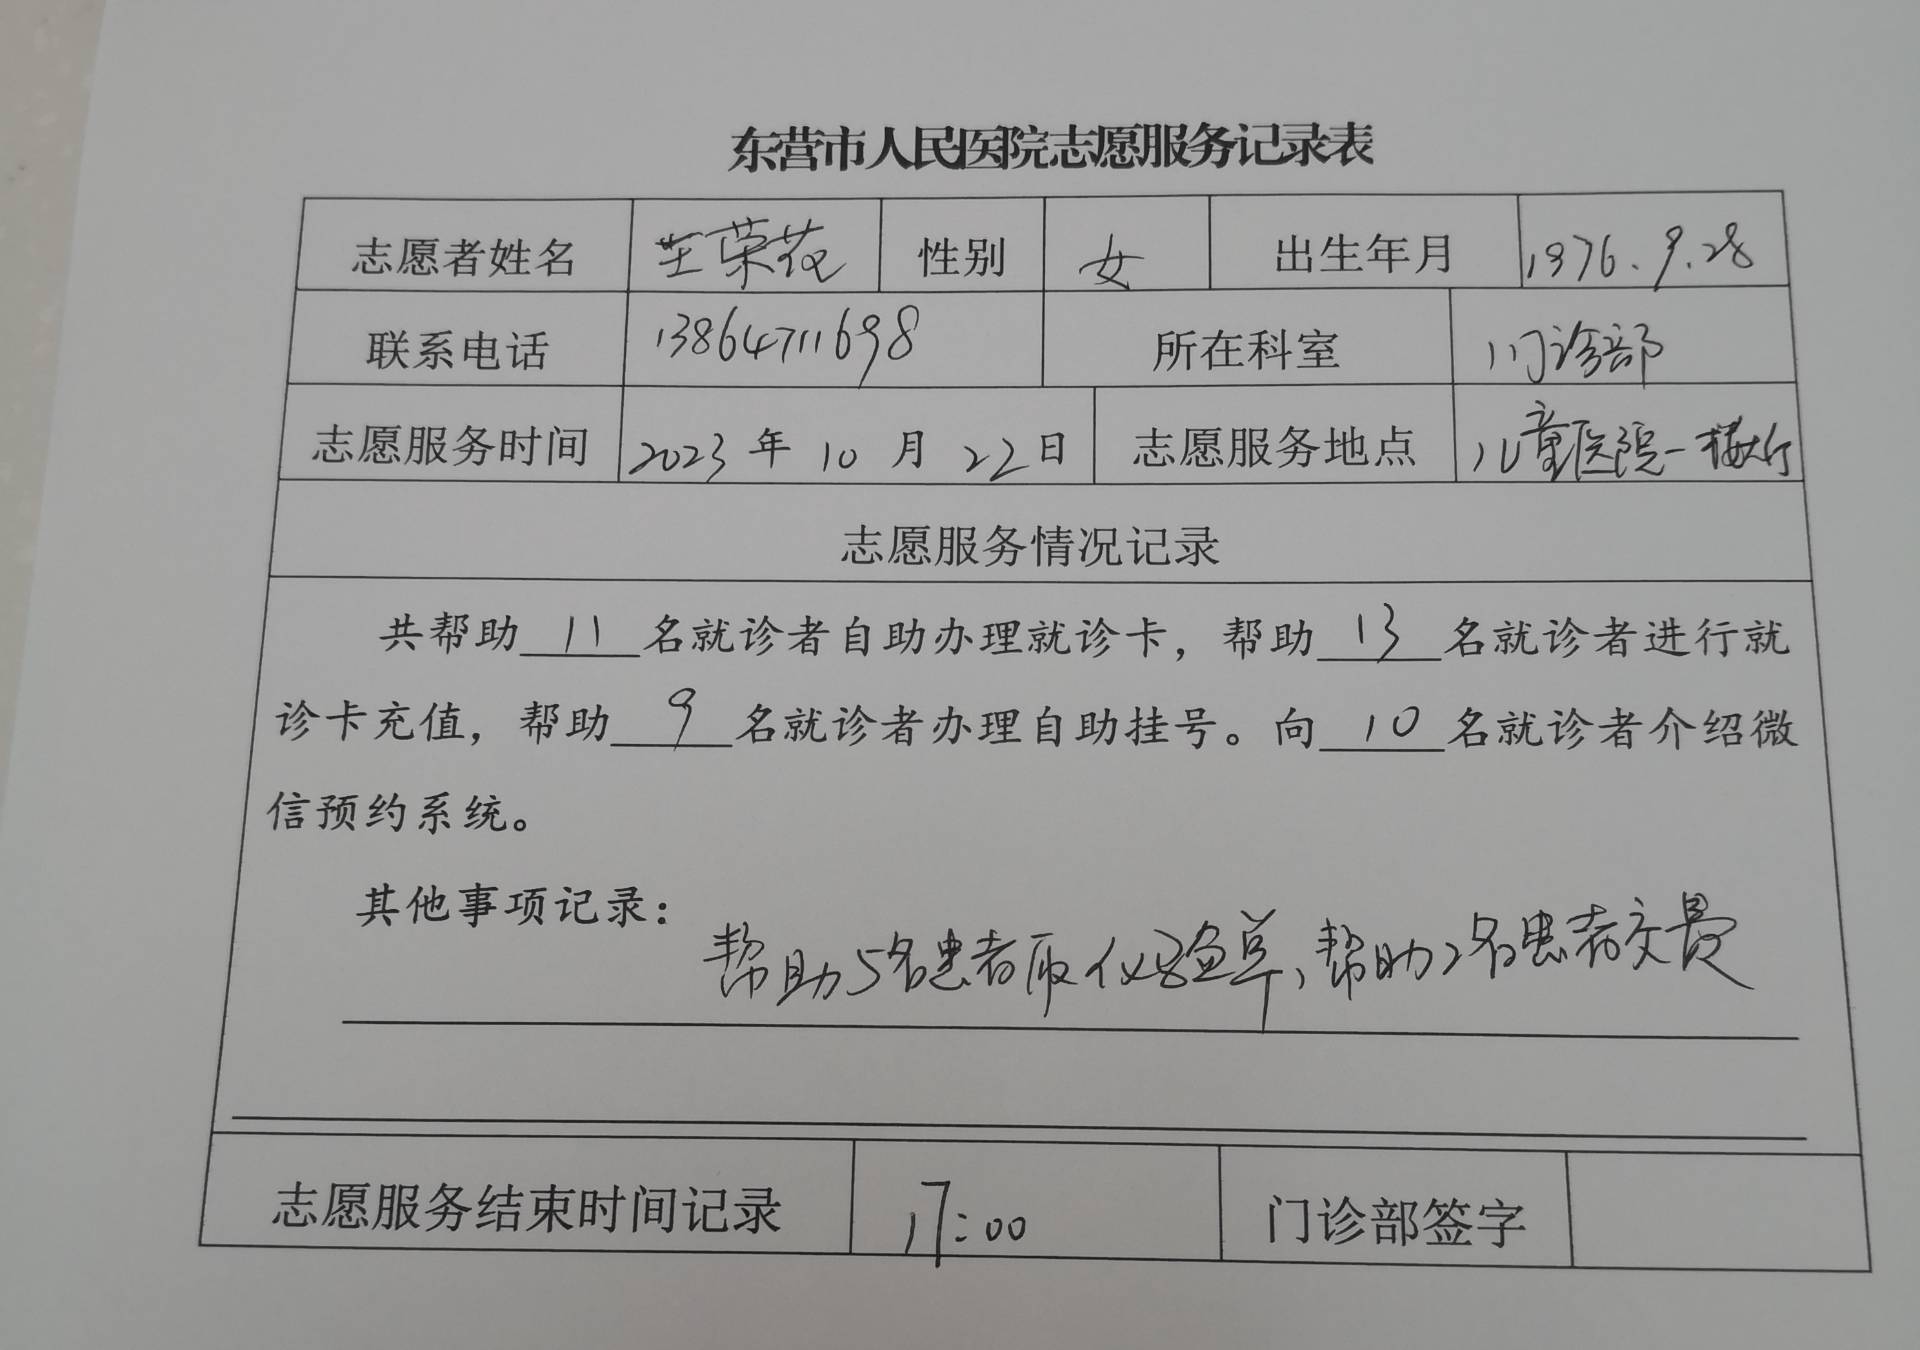 东营市人民医院志愿服务记录表
志愿者姓名 王荣花 性别 女 出生年月 1976.9.28
联系电话 13864711698 所在科室 门诊部
志愿服务时间 2023年10月22日 志愿服务地点 儿童医院一楼大厅
志愿服务情况记录
共帮助 11 名就诊者自助办理就诊卡，帮助 13 名就诊者进行就
诊卡充值，帮助 9 名就诊者办理自助挂号。向 10 名就诊者介绍微
信预约系统。
其他事项记录：
帮助5名患者取化验单，帮助2名患者交费
志愿服务结束时间记录 17:00 门诊部签字